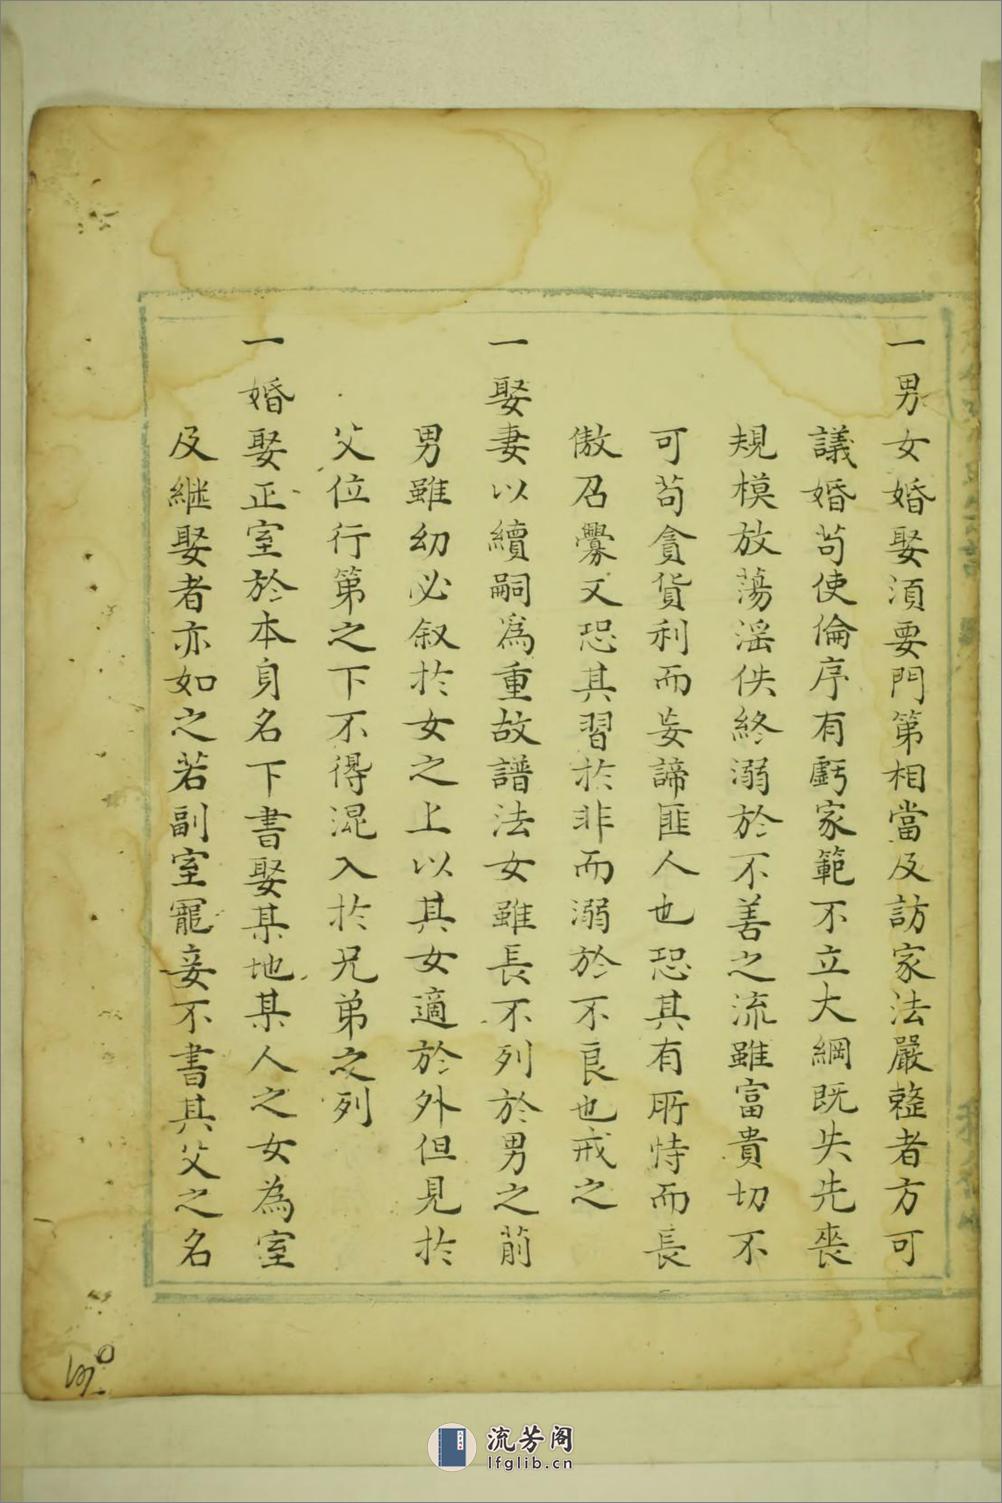 一男女婚娶須要門第相當及訪家法嚴整者方可
議婚苟使倫序有虧家範不立大綱既失先喪
規模放蕩淫佚終溺於不善之流雖富貴切不
可苟貪貨利而妄諦匪人也恐其有所恃而長
傲召釁又恐其習於非而溺於不良也戒之
一娶妻以續嗣為重故譜法女雖長不列於男之前
男雖幼必叙於女之上以其女適於外但見於
父位行第之下不得混入於兄弟之列
一婚娶正室於本身名下書娶某地某人之女為室
及継娶者亦如之若副室寵妾不書其父之名
流芳阁
lfglib.cn